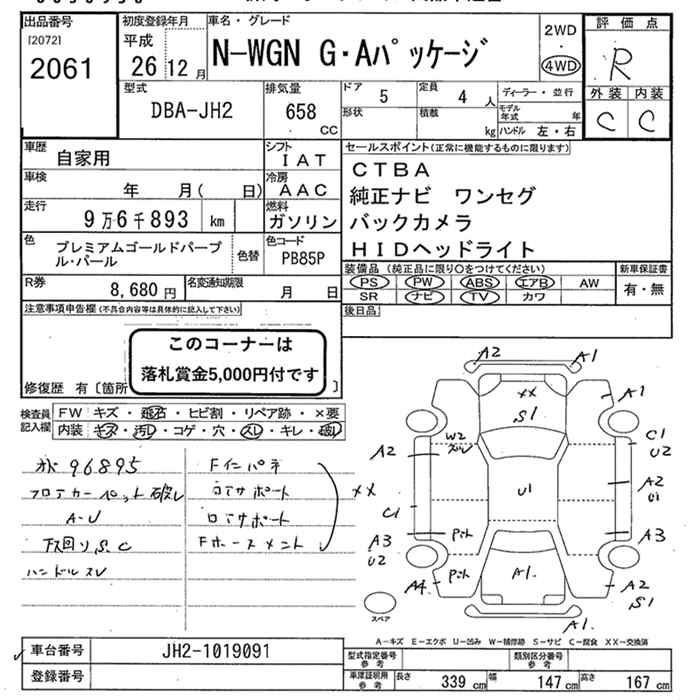 出品番号 初度登録年月 車名・グレード 2WD ・ 4WD 評価点
[2072] 2061 平成 26 12 月 N-WGN G・Aパッケージ R
型式 DBA-JH2 排気量 658 CC ドア 5 定員 4 人 ディーラー・並行 外装 内装
形状 積載 kg モデル年式 年 ハンドル 左・右 C C
車歴 自家用 シフト IAT セールスポイント(正常に機能するものに限ります)
車検 年 月( 日) 冷房 AAC CTBA
走行 9万6千893 km 燃料 ガソリン 純正ナビ ワンセグ
バックカメラ
HIDヘッドライト
色 プレミアムゴールドパープル・パール 色替 色コード PB85P
装備品(純正品に限り○をつけてください) 新車保証書
PS PW ABS エアB AW 有・無
SR ナビ TV カワ
R券 8,680 円 名変通知期限 月 日
後日品
注意事項申告欄(不具合内容等は具体的に記入して下さい)
このコーナーは
落札賞金5,000円付です
修復歴 有〔箇所 〕
検査員記入欄 FW キズ・飛石・ヒビ割・リペア跡・×要
内装 キズ・汚れ・コゲ・穴・スレ・キレ・破れ
96895 Fインパネ
フロアカーペット破レ コアサポート
A-U ロアサポート
下回りS.C Fホースメント
ハンドルスレ
XX
A2 A1
XX S1 A1
W2 C1 U2
A2 U1 A2 U1
C1
A3 U2 A3
A4 A1. A2 S1
A1.
スペア
A-キズ E-エクボ U-凹み W-補修跡 S-サビ C-腐食 XX-交換済
車台番号 JH2-1019091 型式指定番号 参考 類別区分番号 参考
登録番号 車庫証明用 参考 長さ 339 cm 幅 147 cm 高さ 167 cm